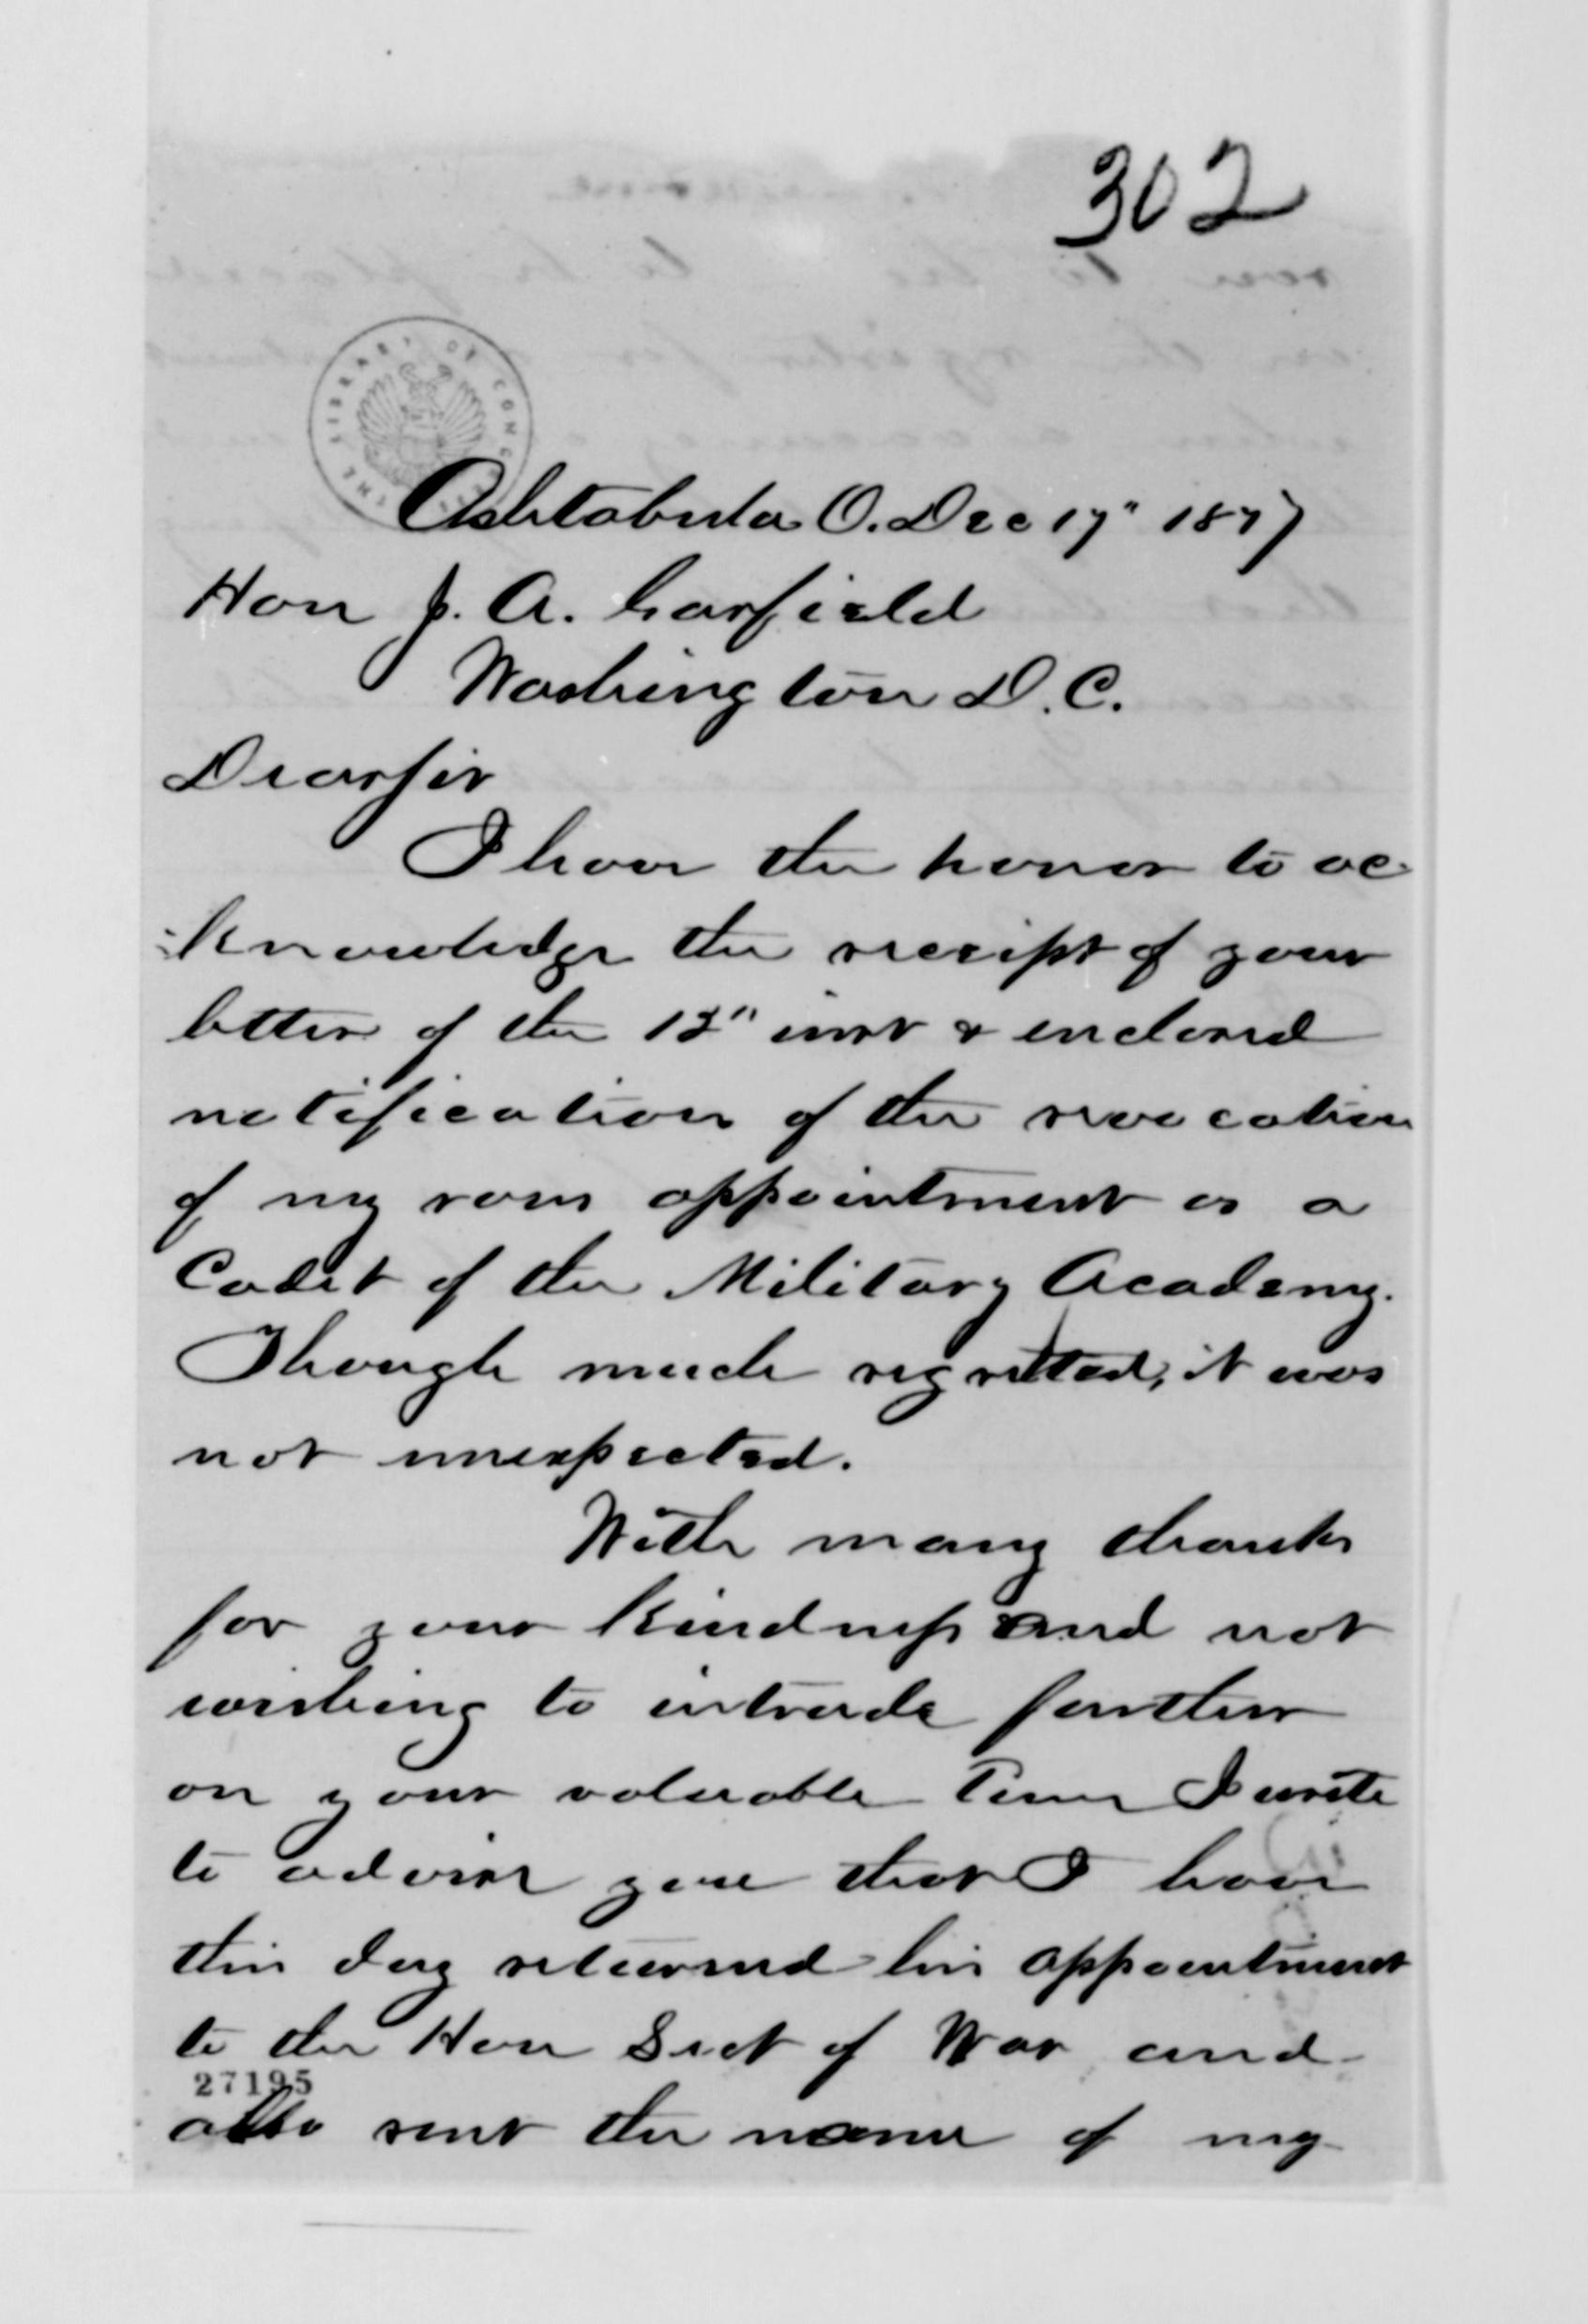 302
THE LIBRARY OF CONGRESS
Ashtabula O. Dec 17" 1877
Hon J. A. Garfield
Washington D. C.
Dear Sir
I have the honor to ac-
-knowledge the receipt of your
letter of the 13" inst & enclosed
notification of the revocation
of my sons appointment as a
Cadet of the Military Academy.
Though much regretted, it was
not unexpected.
With many thanks
for your kindness and not
wishing to intrude further
on your valuable time I write
to advise you that I have
this day returned his appointment
to the Hon Sect of War and
27195
also sent the name of my